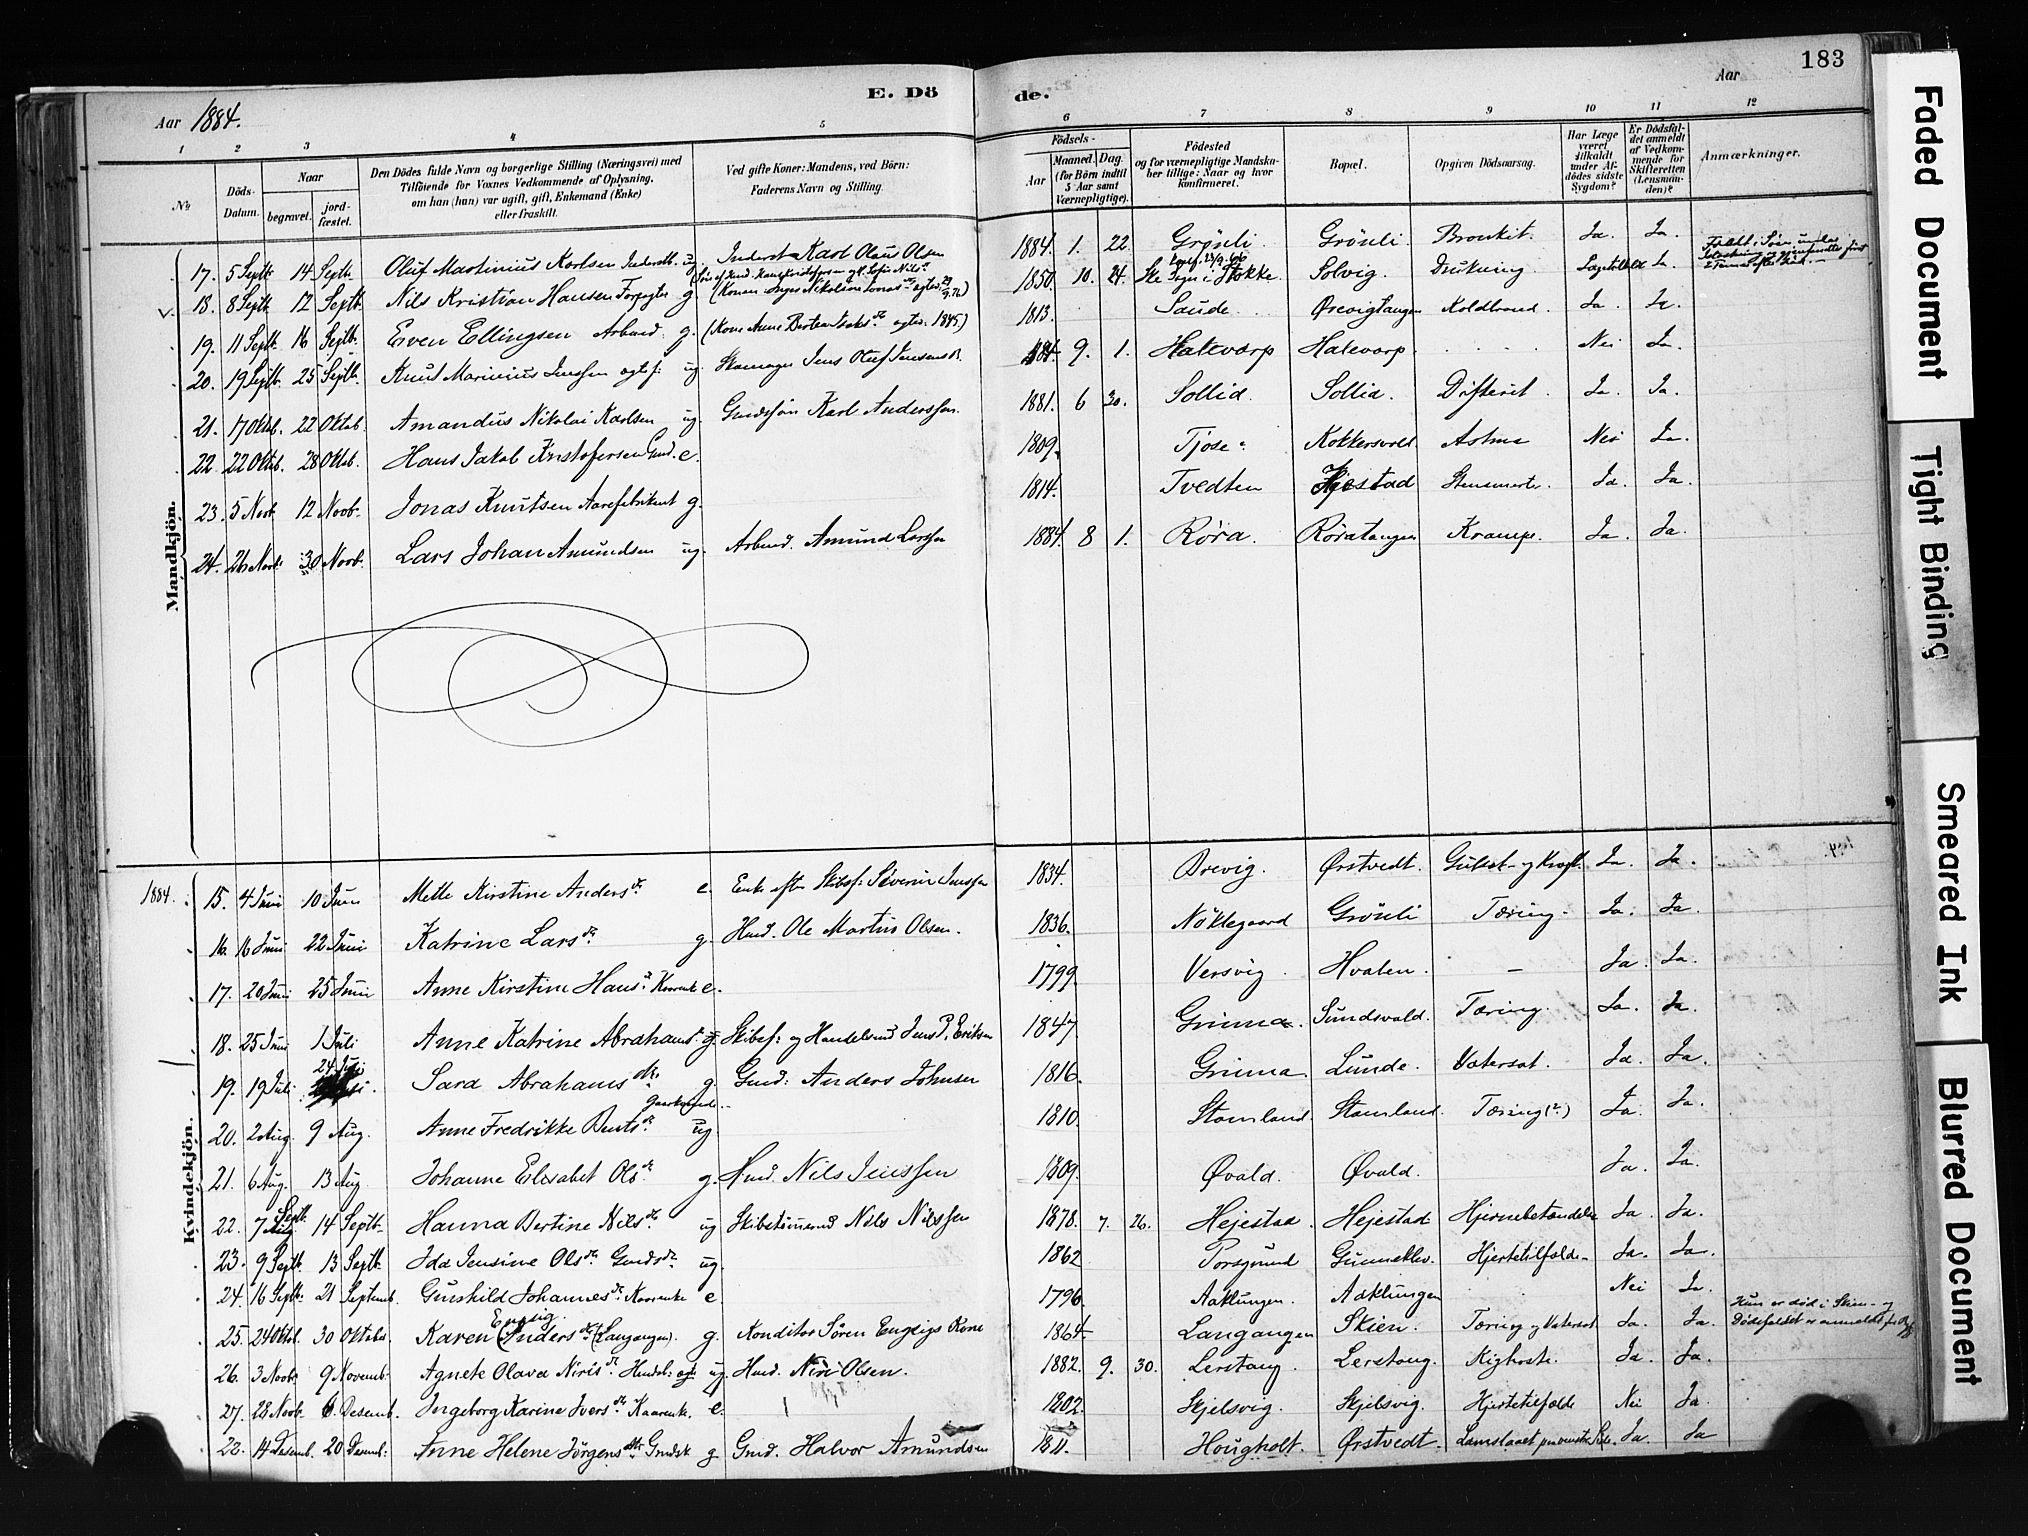 183
E. Döde.
Aar 1884.
Aar
1 2 3 4 5 6 7 8 9 10 11 12
No
Döds-Datum.
Naar
begravet.
jord-fæstet.
Den Dödes fulde Navn og borgerlige Stilling (Næringsvei) med Tilföiende for Voxnes Vedkommende af Oplysning, om han (hun) var ugift, gift, Enkemand (Enke) eller fraskilt.
Ved gifte Koner: Mandens, ved Börn: Faderens Navn og Stilling.
Födsels-
Aar
Maaned. Dag.
(for Börn indtil 5 Aar samt Værnepligtige).
Födested
og for værnepligtige Mandskaber tillige: Naar og hvor konfirmeret.
Bopæl.
Opgiven Dödsaarsag.
Har Læge været tilkaldt under Afdödes sidste Sygdom?
Er Dödsfaldet anmeldt af Vedkommende for Skifteretten (Lensmanden)?
Anmærkninger.
Mandkjön.
17. 5 Septb. 14 Septb. Oluf Martinius Karlsen Inderstb. ug. Inderst Karl Olaus Olsen 1884. 1. 22. Grönli. Grönli. Bronkit. Ja. Ja.
18. 8 Septb. 12 Septb. Nils Kristian Hansen Forpagter g. 1850. 10. 24. Stokke. Solvig. Drukning.
19. 11 Septb. 16 Septb. Even Ellingsen Arbmd. g. 1813. Saude. Ørevigtangen Koldbrand. Ja. Ja.
20. 19 Septb. 25 Septb. Knut Marinius Jenssen ug. Skomager Jens Oluf 9. 1. Halevarp Halevarp. Nei Ja.
21. 17 Oktob. 22 Oktob. Amandus Nikolai Karlsen ug. Karl Anderssen. 1881. 6 30. Sollid. Sollid. Difterit. Ja. Ja.
22. 22 Oktob. 28 Oktob. Hans Jakob Kristofersen Gmd. e. 1809. Tjose. Kokkersvold. Astma Nei Ja.
23. 5 Novb. 12 Novb. Jonas Knutsen Aarefabrikant g. 1814. Tvedten Ja. Ja.
24. 26 Novb. 30 Novb. Lars Johan Amundsen ug. Arbmd. Amund Larssen 1884. 8 1. Röra. Röratangen Krampe. Ja. Ja.
Kvindekjön.
1884. 15. 4 Juni 10 Juni Mette Kirstine Andersdr. e. Enke efter Skibsf: Severin Jenssen 1834. Brevig. Ørstvedt. Gulsot og Kræft. Ja. Ja.
16. 16 Juni 22 Juni Katrine Larsdr. g. Hmd. Ole Martin Olsen. 1836. Nöklegaard Grönli Tæring. Ja. Ja.
17. 20 Juni 25 Juni Anne Kirstine Hansdr. Kaarenke e. 1799. Versvig. Hvalen. — Ja. Ja.
18. 25 Juni 1 Juli Anne Katrine Abrahamsdr. g Skibsf: og Handelsmd Jens P. Eriksen 1847 Grimma. Sundsvald. Tæring. Ja. Ja.
19. 19 Juli 24 Juli Sara Abrahamsdtr. g. Gmd: Anders Johnsen 1816. Grimma Lunde. Vatersot. Ja. Ja.
20. 2 Aug. 9 Aug. Anne Fredrikke Bentsdr. ug. 1810. Stamland Stamland. Tæring (?) Ja. Ja.
21. 6 Aug. 13 Aug. Johanne Elisabet Olsdr. g. Hmd. Nils Jenssen 1809. Øvald. Øvald. Ja. Ja.
22. 7 Septb. 14 Septb. Hanna Bertine Nilsdr. ug Skibstimmermd Nils Nilssen 1878. 7. 26. Hejestad. Hejestad Hjernebetændelse Ja. Ja.
23. 9 Septb. 13 Septb. Ida Jensine Olsdr. Gmdsdr. ug. 1862 Porsgrund Gunneklev. Hjertetilfælde. Ja. Ja.
24. 16 Septb. 21 Septemb. Gunhild Johannesdr. Kaarenke e 1796. Aaklungen. Aaklungen Nei Ja.
25. 24 Oktob. 30 Oktober. Karen Engzig (Andersdr.) (Langangen). g. Konditor Sören Engzigs Kone 1864 Langangen Skien. Tæring og Vatersot Ja. Ja. Hun er död i Skien og Dödsfaldet er anmeldt
26. 3 Novb. 9 Novemb. Agnete Olava Nirisdr. ug. Hmd. Niri Olsen. 1882. 9. 30. Lerstang. Lerstang. Kighoste. Ja. Ja.
27. 28 Novb. 6. Desemb. Ingeborg Karine Iversdr. Kaarenke. e. 1802. Skjelsvig. Skjelsvig. Hjertetilfælde Nei Ja
28. 14 Desemb. 20 Desemb: Anne Helene Jörgensdtr. Gmdsk g Gmd. Halvor Amundsen Hougholt. Ørstvedt. Lamslaaet paa venstre Side. Ja. Ja
Faded Document
Tight Binding
Smeared Ink
Blurred Document